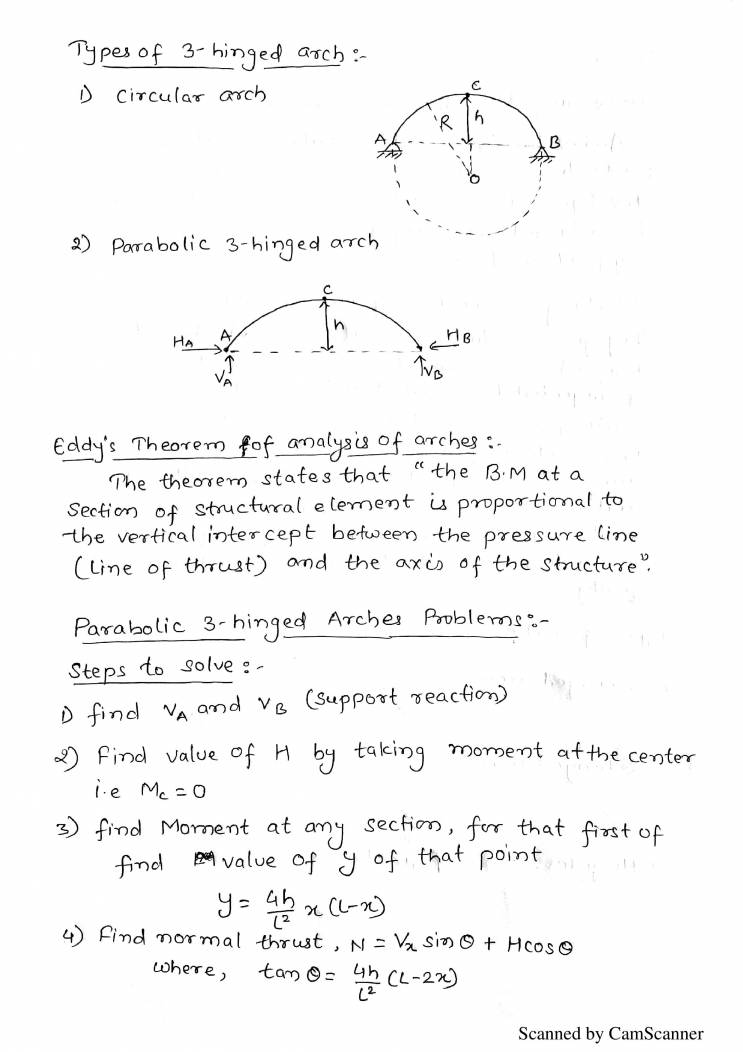 Types of 3-hinged arch :-
1) Circular arch
C
R h
A B
O
2) Parabolic 3-hinged arch
C
h
HA A HB
VA VB
Eddy's Theorem fof analysis of arches :-
The theorem states that "the B.M at a
Section of structural element is proportional to
the vertical intercept between the pressure line
(Line of thrust) and the axis of the structure".
Parabolic 3-hinged Arches Problems :-
Steps to solve :-
1) find VA and VB (support reaction)
2) Find value of H by taking moment at the center
i.e Mc = 0
3) find Moment at any section, for that first of
find value of y of that point
y = 4h/L² x (L-x)
4) Find normal thrust, N = Vx sin θ + H cos θ
where, tan θ = 4h/L² (L-2x)
Scanned by CamScanner